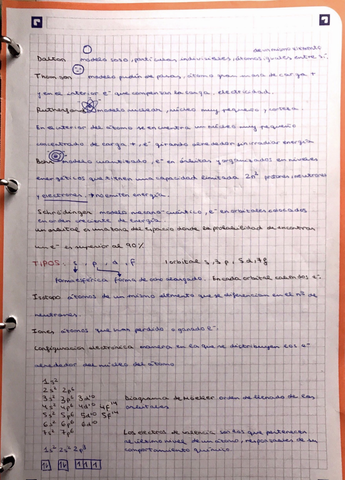 de un mismo elemento
Dalton modelo liso, partículas, indivisibles, átomos, iguales entre sí.
Thomson modelo pudin de pasas, átomo gran masa de carga +
y en el interior e⁻ que compensan la carga, electricidad.
Rutherford modelo nuclear, núcleo muy pequeño, corteza.
En el interior del átomo se encuentra un núcleo muy pequeño
concentrado de carga +, e⁻ girando alrededor sin irradiar energía
Bohr modelo cuantizado, e⁻ en órbitas y organizados en niveles
energéticos que tienen una capacidad limitada 2n² protones, neutrones
y electrones. no emiten energía.
Schrödinger modelo mecano-cuántico, e⁻ en orbitales colocados
en orden creciente de energía
un orbital es una zona del espacio donde la probabilidad de encontrar
un e⁻ es superior al 90%
TIPOS: s, p, d, f 1 orbital s, 3 p, 5 d, 7 f
forma esférica forma de ocho alargado. En cada orbital caben dos e⁻.
Isótopo átomos de un mismo elemento que se diferencian en el nº de
neutrones.
Iones átomos que han perdido o ganado e⁻.
Configuración electrónica manera en la que se distribuyen los e⁻
alrededor del núcleo del átomo
1s²
2s² 2p⁶
3s² 3p⁶ 3d¹⁰ Diagrama de Moeller orden de llenado de los
4s² 4p⁶ 4d¹⁰ 4f¹⁴ orbitales
5s² 5p⁶ 5d¹⁰ 5f¹⁴
6s² 6p⁶ 6d¹⁰
7s² 7p⁶ Los electrones de valencia son los que pertenecen
al último nivel de un átomo, responsables de su
1s² 2s² 2p³ comportamiento químico